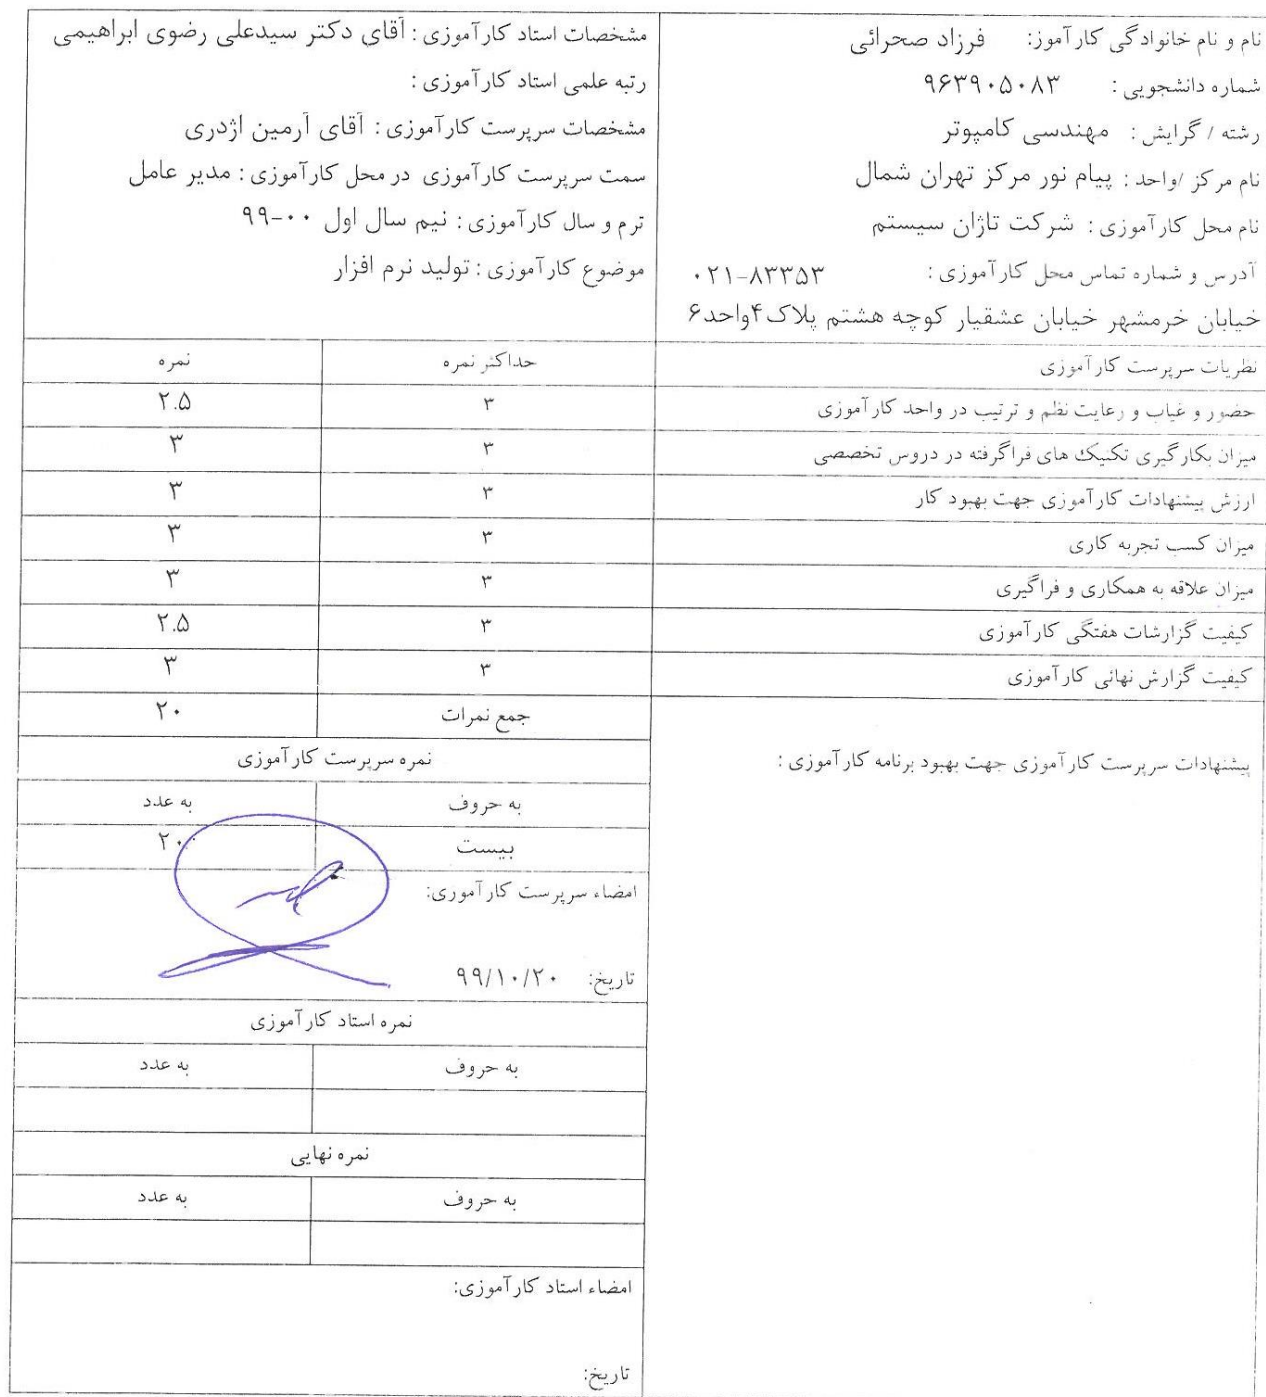 نام و نام خانوادگی کارآموز: فرزاد صحرائی
شماره دانشجویی : ۹۶۳۹۰۵۰۸۳
رشته / گرایش : مهندسی کامپیوتر
نام مرکز /واحد : پیام نور مرکز تهران شمال
نام محل کارآموزی : شرکت تاژان سیستم
آدرس و شماره تماس محل کارآموزی : ۰۲۱-۸۳۳۵۳
خیابان خرمشهر خیابان عشقیار کوچه هشتم پلاک۴واحد۶
مشخصات استاد کارآموزی : آقای دکتر سیدعلی رضوی ابراهیمی
رتبه علمی استاد کارآموزی :
مشخصات سرپرست کارآموزی : آقای آرمین اژدری
سمت سرپرست کارآموزی در محل کارآموزی : مدیر عامل
ترم و سال کارآموزی : نیم سال اول ۰۰-۹۹
موضوع کارآموزی : تولید نرم افزار
نظریات سرپرست کارآموزی حداکثر نمره نمره
حضور و غیاب و رعایت نظم و ترتیب در واحد کارآموزی ۳ ۲.۵
میزان بکارگیری تکنیک های فراگرفته در دروس تخصصی ۳ ۳
ارزش پیشنهادات کارآموزی جهت بهبود کار ۳ ۳
میزان کسب تجربه کاری ۳ ۳
میزان علاقه به همکاری و فراگیری ۳ ۳
کیفیت گزارشات هفتگی کارآموزی ۳ ۲.۵
کیفیت گزارش نهائی کارآموزی ۳ ۳
جمع نمرات ۲۰
پیشنهادات سرپرست کارآموزی جهت بهبود برنامه کارآموزی :
نمره سرپرست کارآموزی
به حروف به عدد
بیست ۲۰
امضاء سرپرست کارآموری:
تاریخ: ۹۹/۱۰/۲۰
نمره استاد کارآموزی
به حروف به عدد
نمره نهایی
به حروف به عدد
امضاء استاد کارآموزی:
تاریخ: